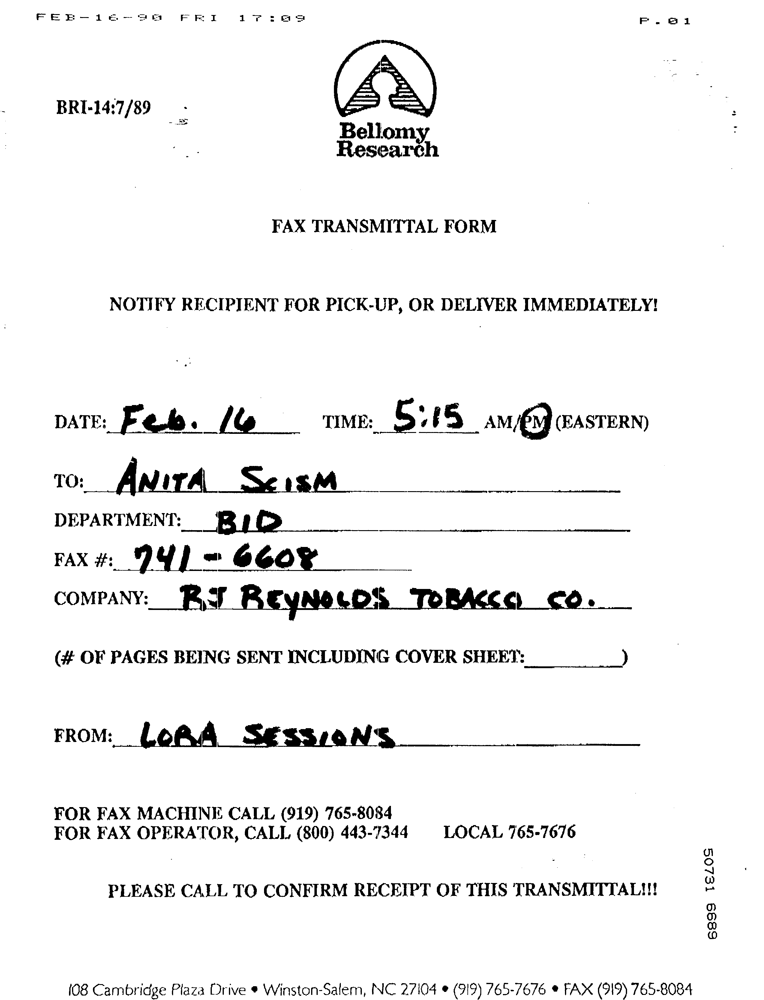 FEB-16-90 FRI 17:09 P.01
BRI-14:7/89
Bellomy
Research
FAX TRANSMITTAL FORM
NOTIFY RECIPIENT FOR PICK-UP, OR DELIVER IMMEDIATELY!
DATE: Feb. 16 TIME: 5:15 AM/PM (EASTERN)
TO: ANITA SCISM
DEPARTMENT: BID
FAX #: 741-6608
COMPANY: RJ REYNOLDS TOBACCO CO.
(# OF PAGES BEING SENT INCLUDING COVER SHEET:__________)
FROM: LORA SESSIONS
FOR FAX MACHINE CALL (919) 765-8084
FOR FAX OPERATOR, CALL (800) 443-7344 LOCAL 765-7676
PLEASE CALL TO CONFIRM RECEIPT OF THIS TRANSMITTAL!!!
50731 6689
108 Cambridge Plaza Drive • Winston-Salem, NC 27104 • (919) 765-7676 • FAX (919) 765-8084